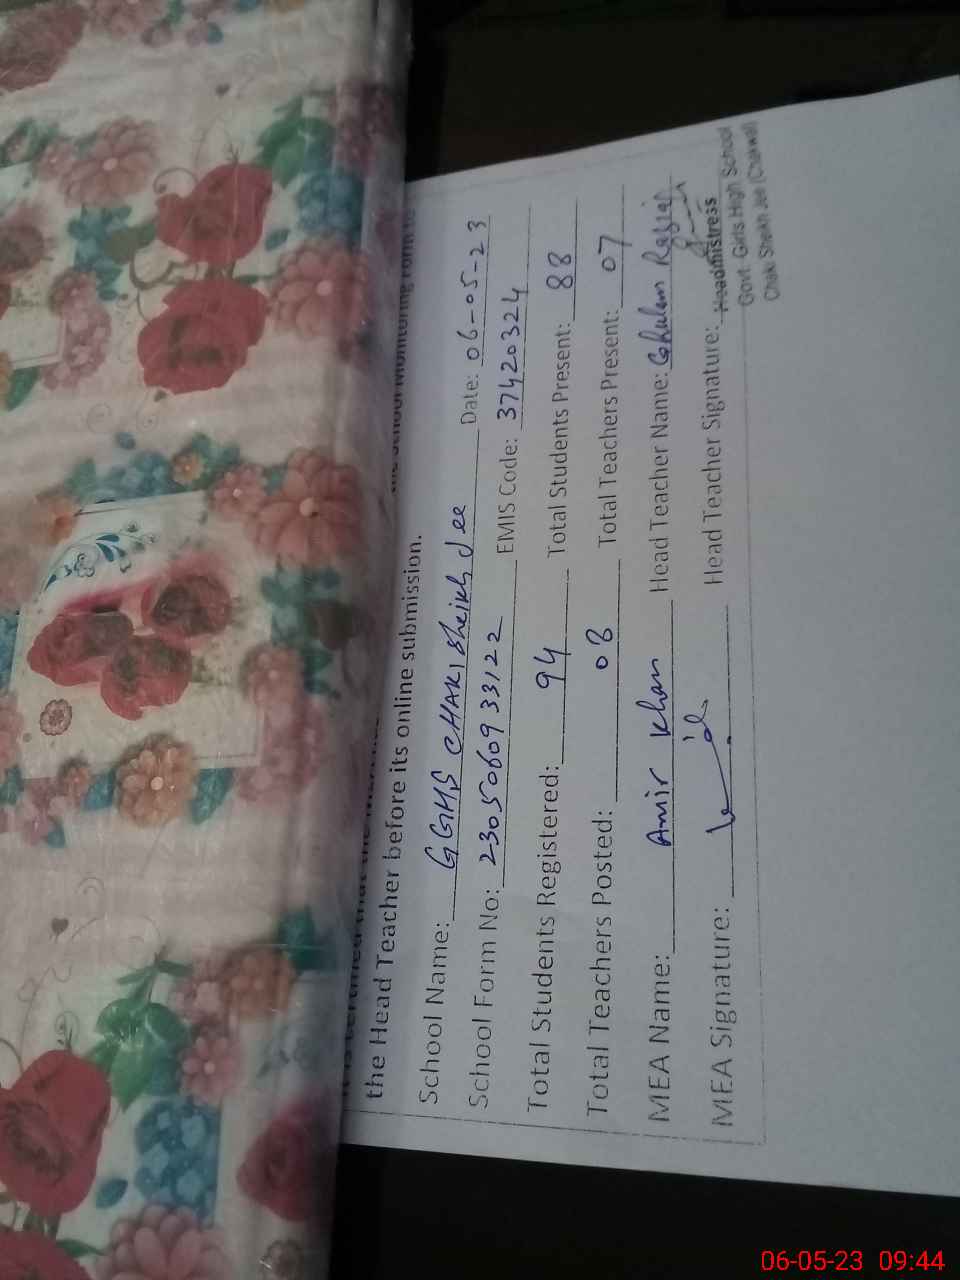 the School Monitoring Form to
the Head Teacher before its online submission.
School Name: GGHS CHAKI Sheikh Jee Date: 06-05-23
School Form No: 23050609 33122 EMIS Code: 37420324
Total Students Registered: 94 Total Students Present: 88
Total Teachers Posted: 08 Total Teachers Present: 07
MEA Name: Amir Khan Head Teacher Name: Ghulam
MEA Signature: Head Teacher Signature:
Headmistress
Govt. Girls High School
Chaki Sheikh Jee (Chakwal)
06-05-23 09:44